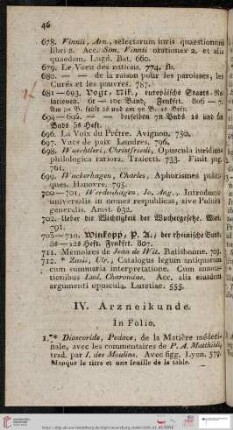 46
678. Vinnii, Arn., selectarum iuris quaestionum
libri 2. Acc. Sim. Vinnii orationes 2. et alia
quaedam. Lugd. Bat. 660.
679. Le Voeu des nations. 774. fl.
680. — — de la raison pour les paroisses, les
Curés et les pauvres. 787.
681—693. Vogt, Nik., europäische Staats-Re-
lationen. 6r — 10r Band, Frnkfrt. 806 — 7.
694—695. — — dieselben 7n Bads 2s und
Bads 3s Heft.
696. La Voix du Prêtre. Avignon. 750.
697. Vues de paix Londres. 796.
698. Waechtleri, Christfredi, Opuscula iuridico
philologica rariora. Traiecti. 733. Finit pag.
761.
699. Wackerhagen, Charles, Aphorismes politi-
ques. Hanovre. 795.
700—701. Werdenhagen, Io. Ang., Introductio
universalis in omnes respublicas, sive Politica
generalis. Amst. 632.
702. Ueber die Wichtigkeit der Wuchergesetze. Wien.
791.
703—710. Winkopp, P. A., der rheinische Bund.
Frnkfrt. 807.
711. Mémoires de Jean de Wit. Ratisbonne. 709.
712. * Zasii, Ulr., Catalogus legum antiquarum
cum summaria interpretatione. Cum annota-
tionibus Lud. Charondae. Acc. alia eiusdem
argumenti opuscula. Lutetiae. 555.
IV. Arzneikunde.
In Folio.
1.* Dioscoride, Pedace, de la Matière médeci-
nale, avec les commentaires de P. A. Matthiole,
trad. par I. des Moulins. Avec figg. Lyon. 579.
Manque le titre et une feuille de la table.